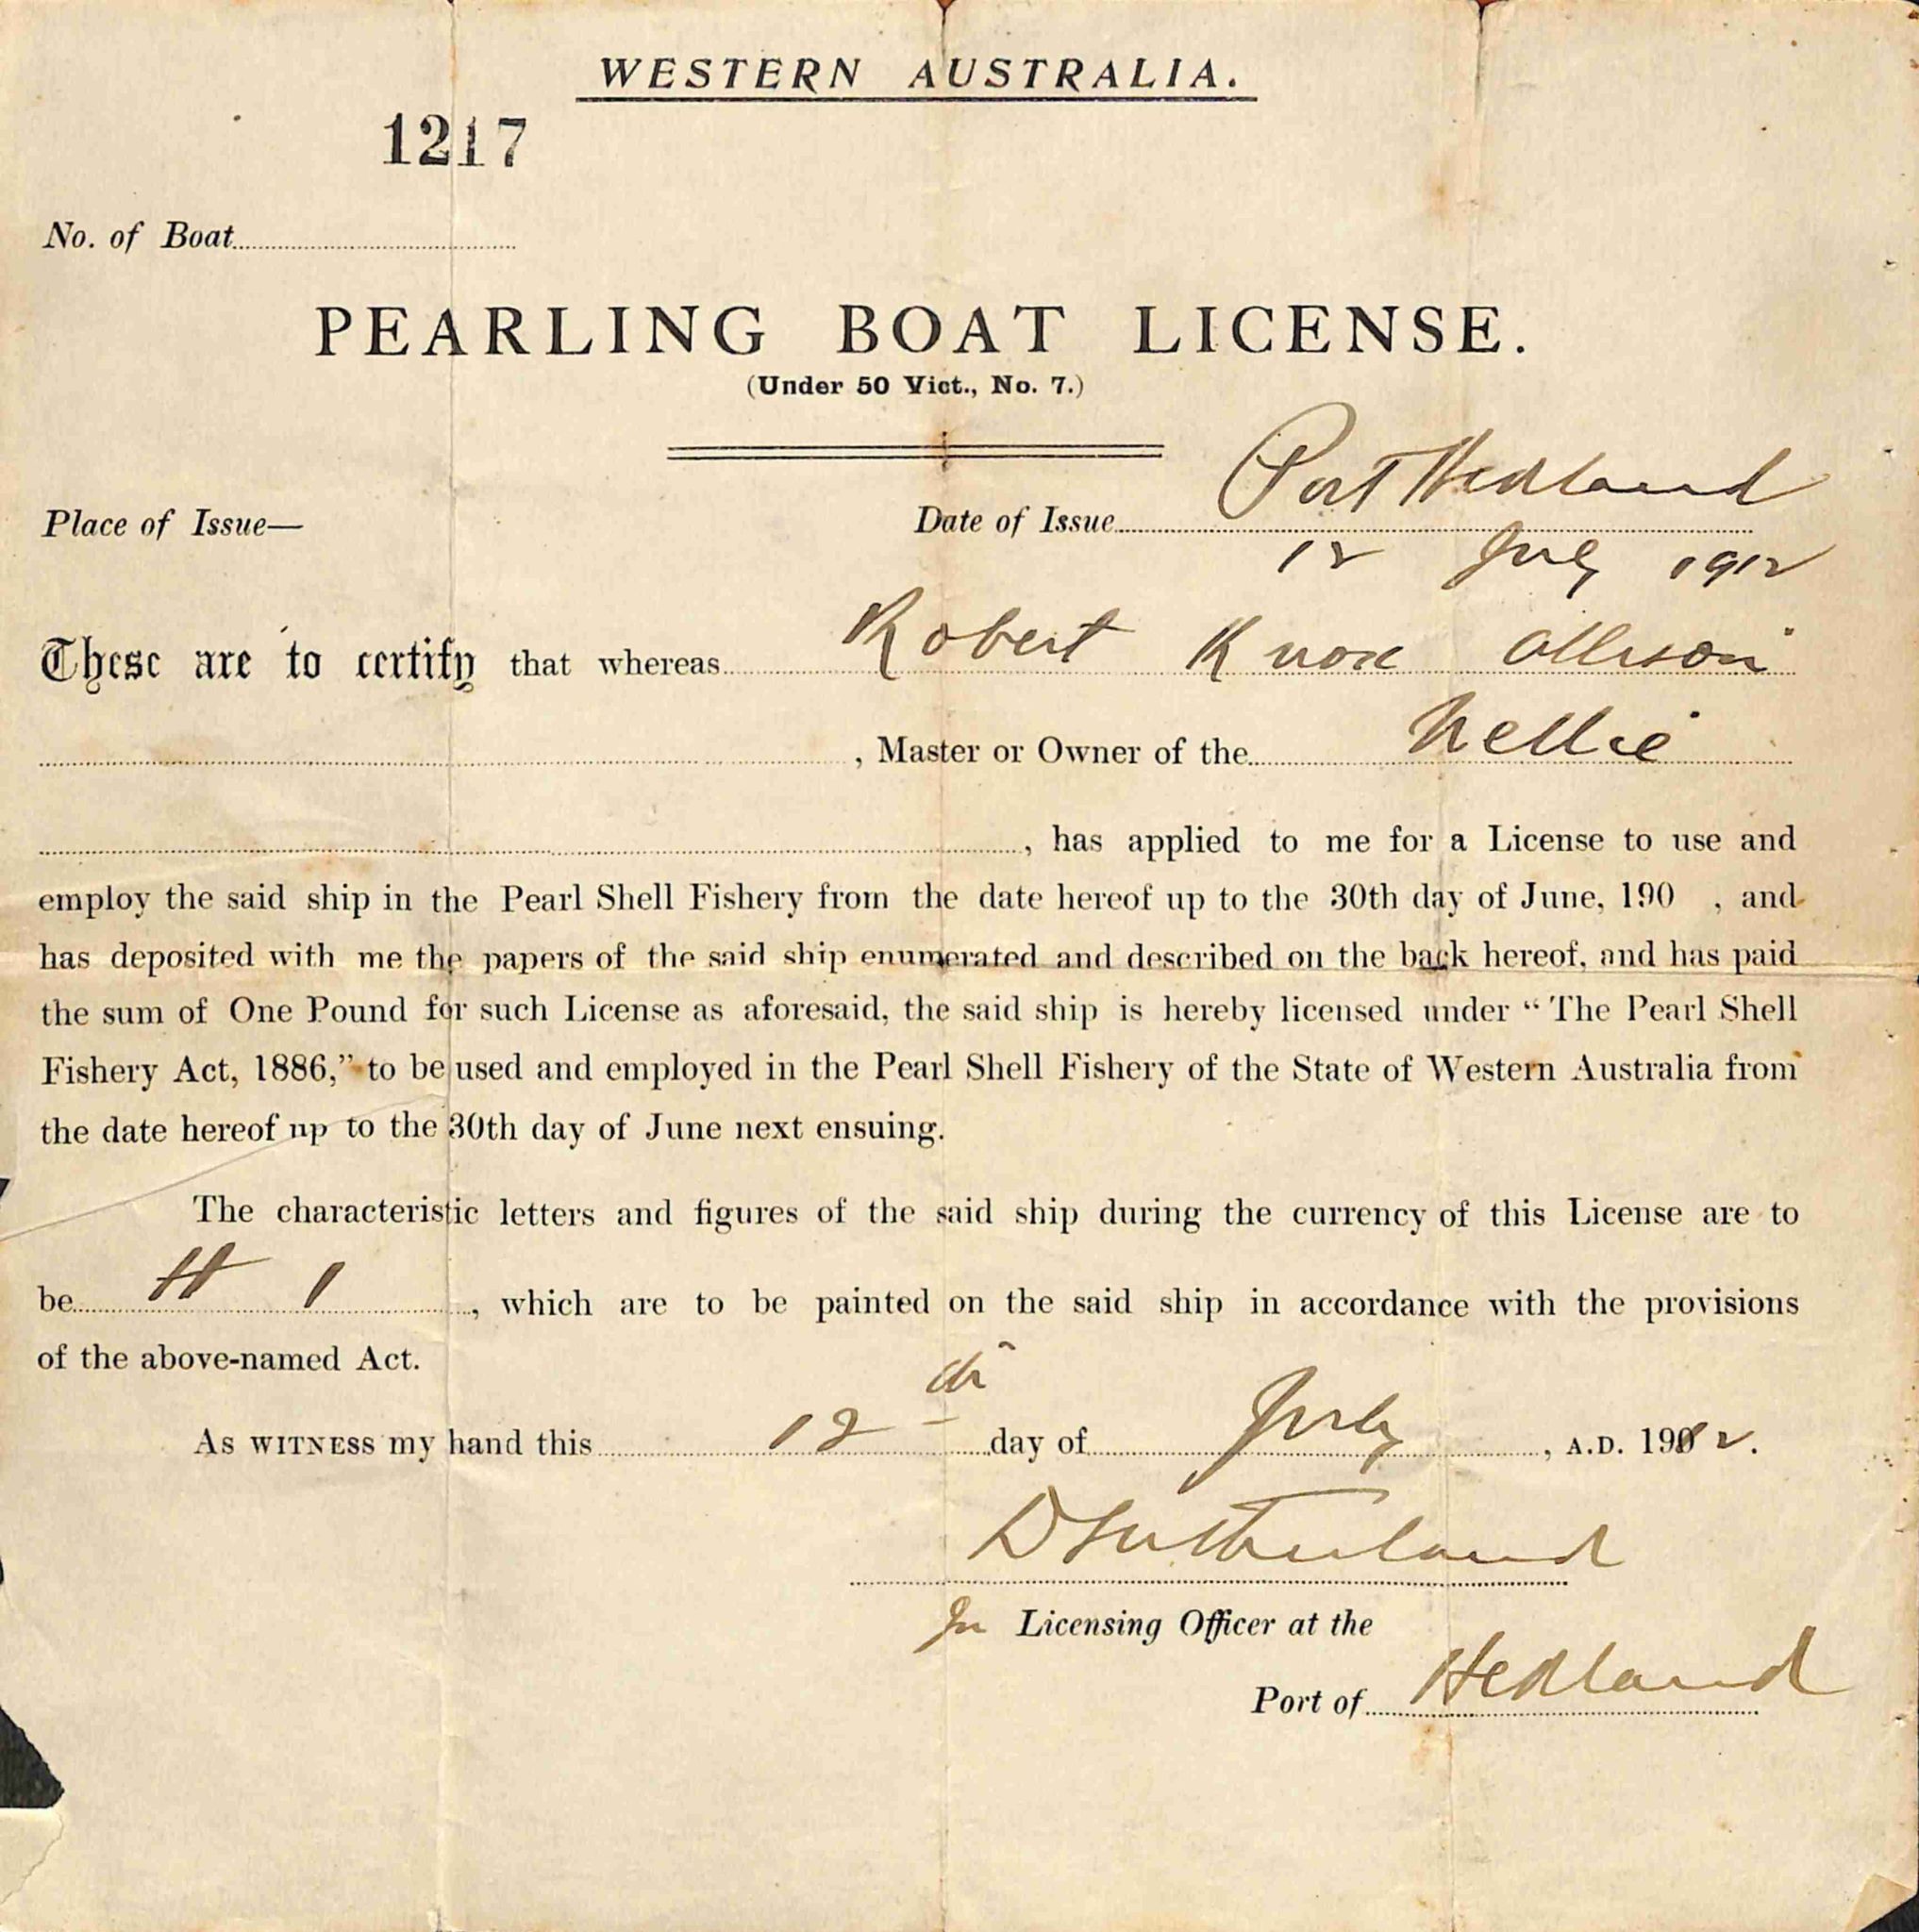 WESTERN AUSTRALIA.
1217
No. of Boat
PEARLING BOAT LICENSE.
(Under 50 Vict., No. 7.)
Port Hedland
Place of Issue— Date of Issue
12 July 1912
These are to certify that whereas Robert Knox Allison
, Master or Owner of the Nellie
, has applied to me for a License to use and
employ the said ship in the Pearl Shell Fishery from the date hereof up to the 30th day of June, 190 , and
has deposited with me the papers of the said ship enumerated and described on the back hereof, and has paid
the sum of One Pound for such License as aforesaid, the said ship is hereby licensed under “The Pearl Shell
Fishery Act, 1886,” to be used and employed in the Pearl Shell Fishery of the State of Western Australia from
the date hereof up to the 30th day of June next ensuing.
The characteristic letters and figures of the said ship during the currency of this License are to
be H 1, which are to be painted on the said ship in accordance with the provisions
of the above-named Act.
As WITNESS my hand this 12th day of July, A.D. 1912.
D Sutherland
Licensing Officer at the
Port of Hedland